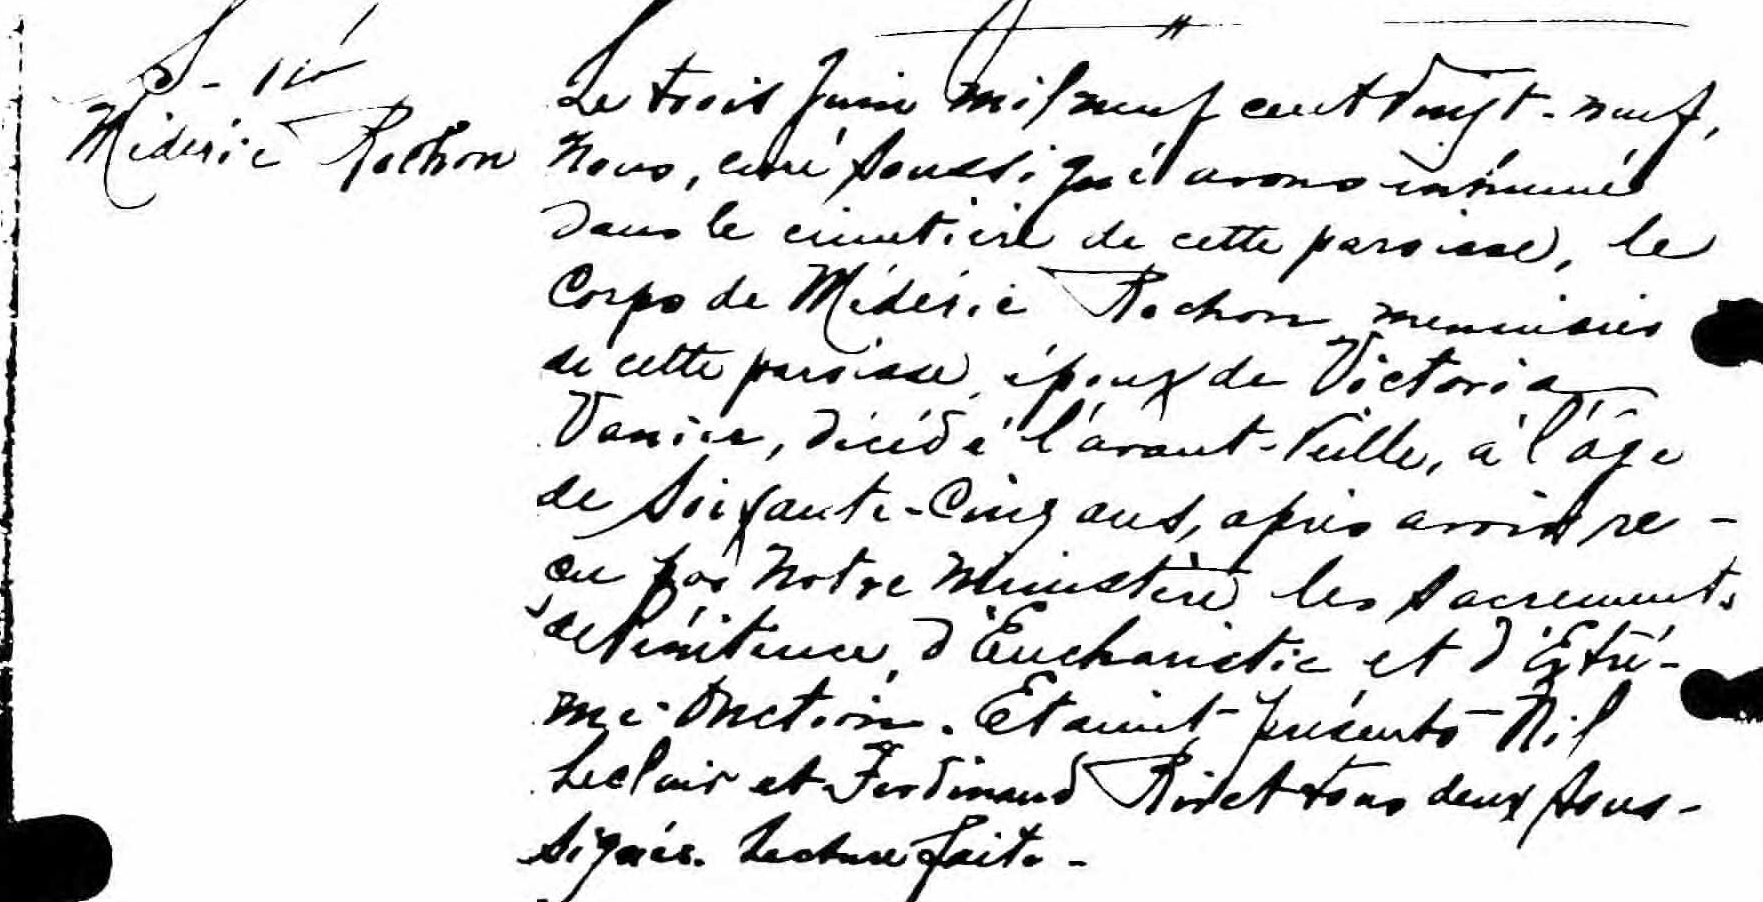 S-10
Médéric Rochon
Le trois Juin mil neuf cent vingt-neuf,
Nous, curé soussigné avons inhumé
dans le cimetière de cette paroisse, le
Corps de Médéric Rochon menuisier
de cette paroisse, époux de Victoria
Vanier, décédé l'avant-veille, à l'âge
de soixante-cinq ans, après avoir re-
çu par Notre Ministère les sacrements
de Pénitence, d'Eucharistie et d'Extrê-
me-Onction. Etaient présents Nil
Leclair et Ferdinand Rivet tous deux sous-
signés. Lecture faite-